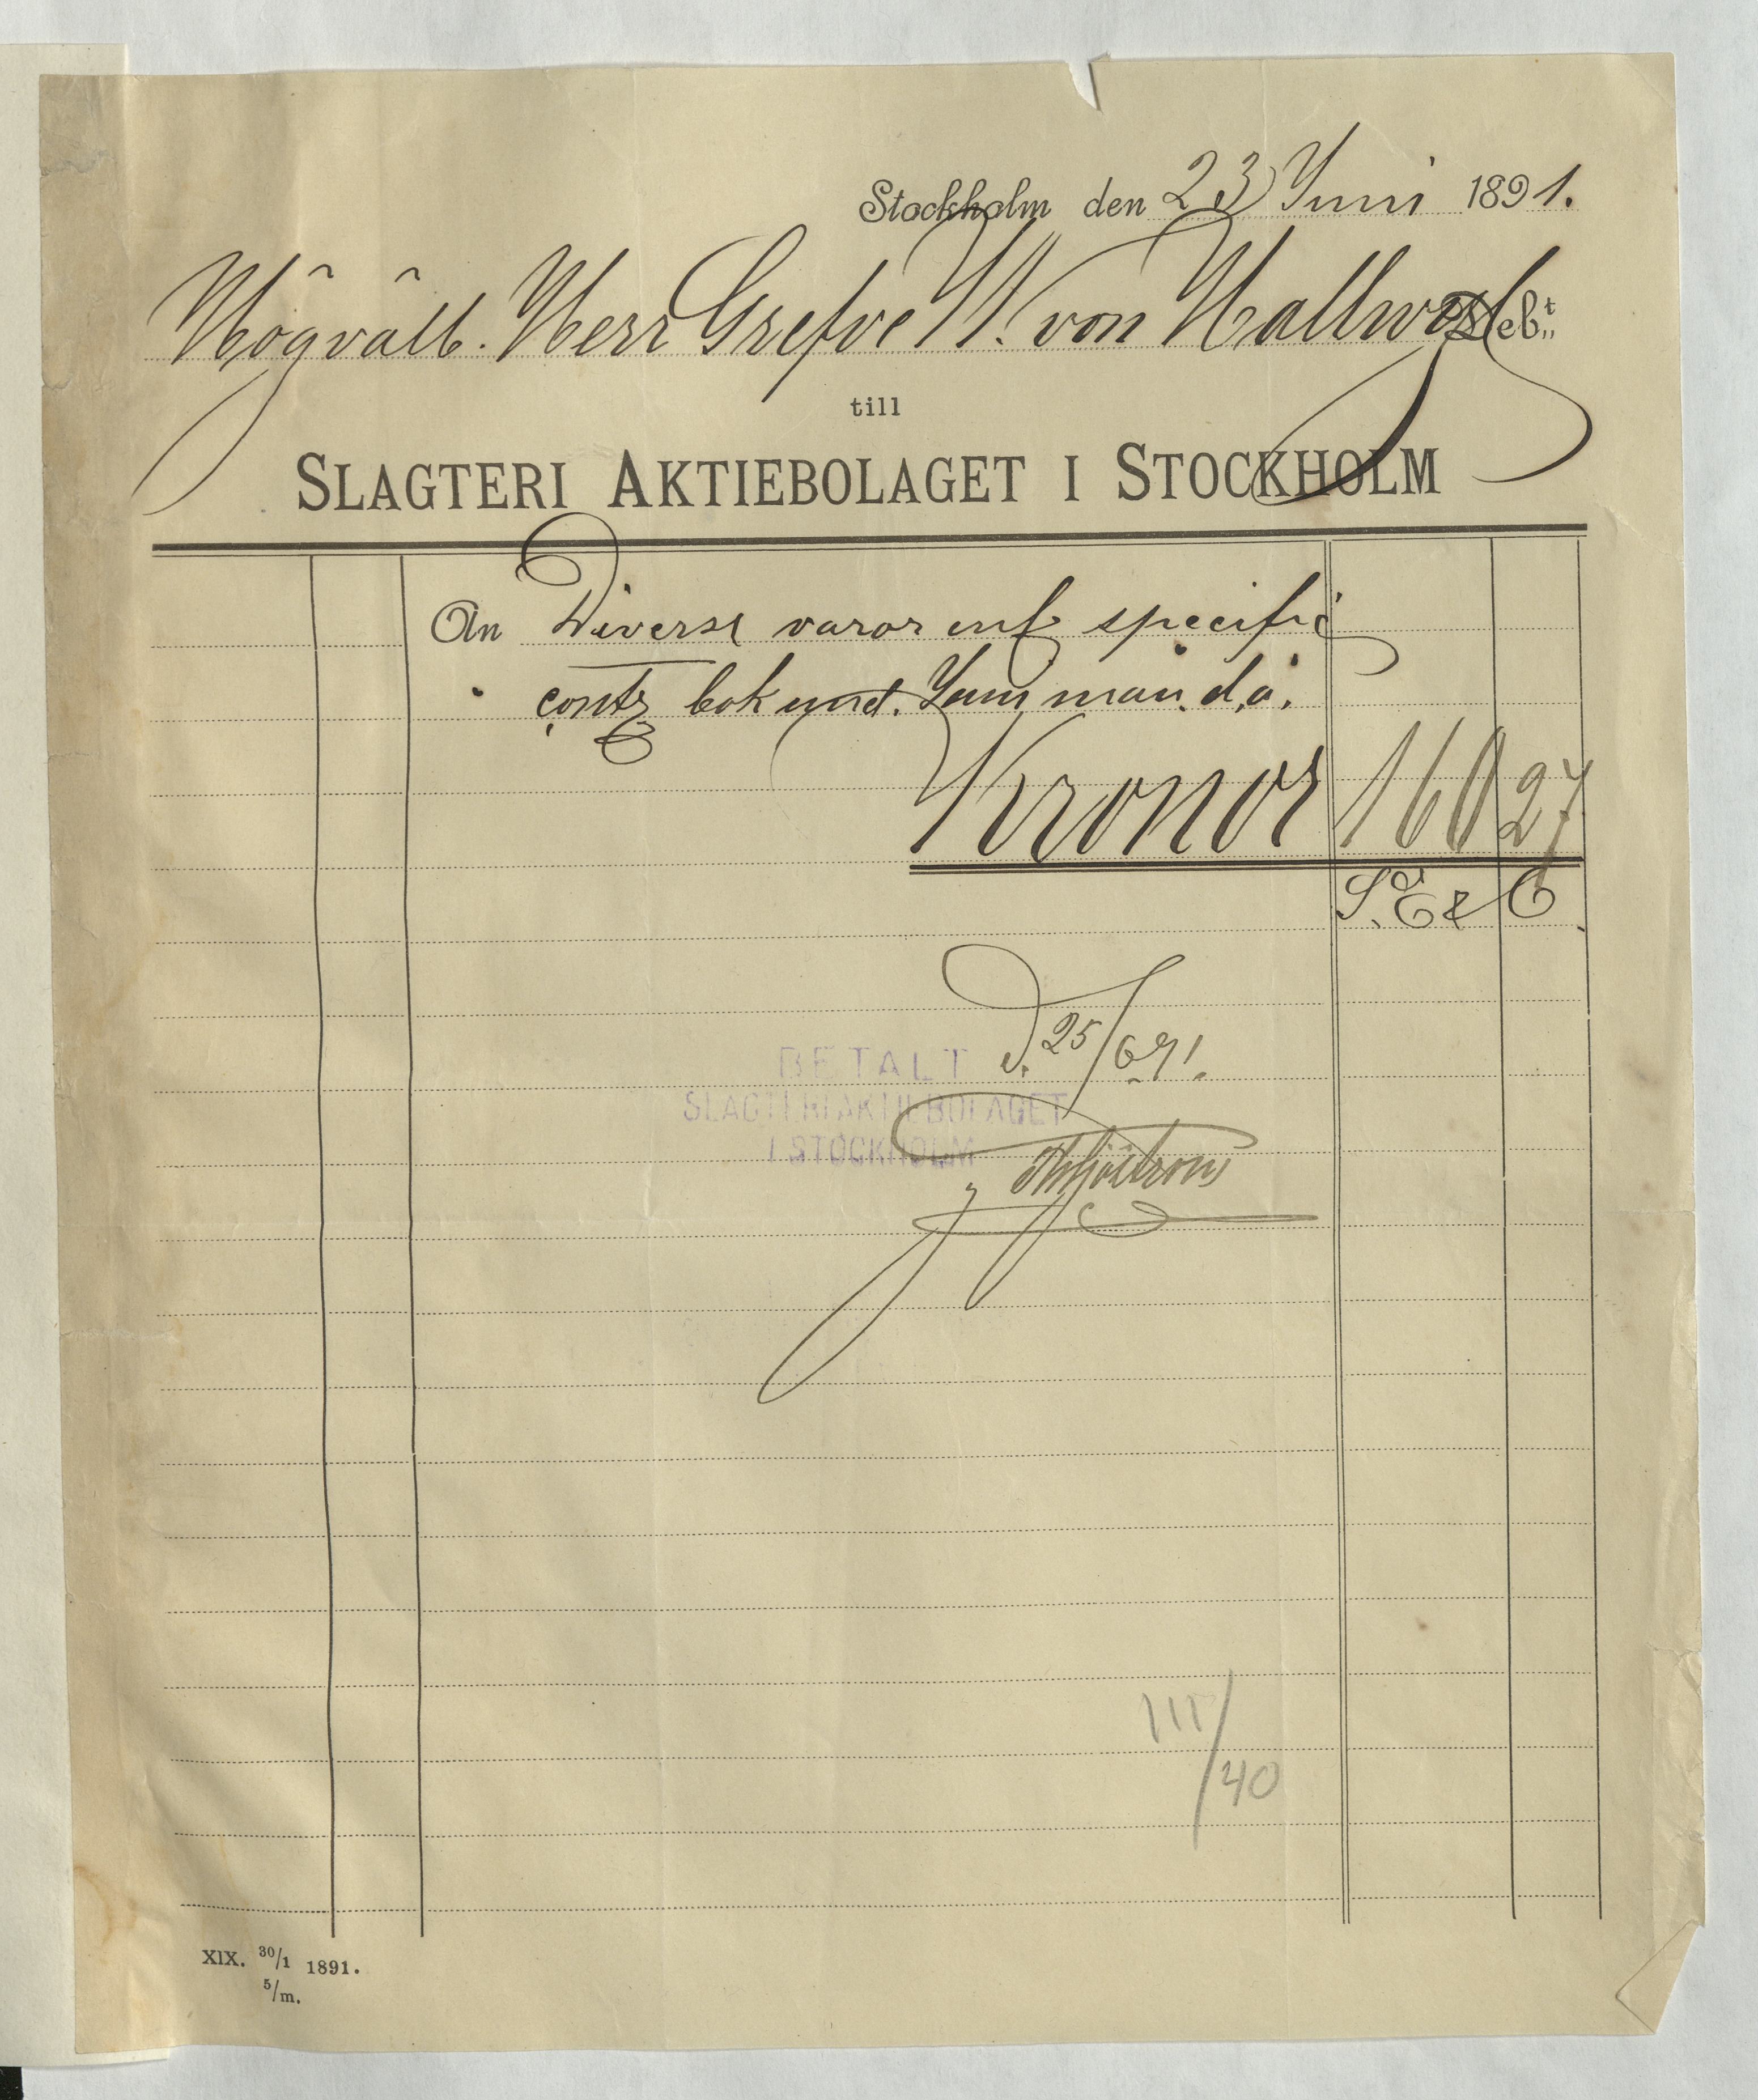 Stockholm den 23 Juni 1891.
Högvälb. Herr Grefve W. von Hallwyl Debt
till
SLAGTERI AKTIEBOLAGET I STOCKHOLM
An Diverse varor enl specific
contr bok und. Juni mån. d.å.
Kronor 160 27
S. E & O
d. 25/6 91.
BETALT
SLAGTERIAKTIEBOLAGET
I STOCKHOLM
111/40
XIX. 30/1 1891.
5/m.